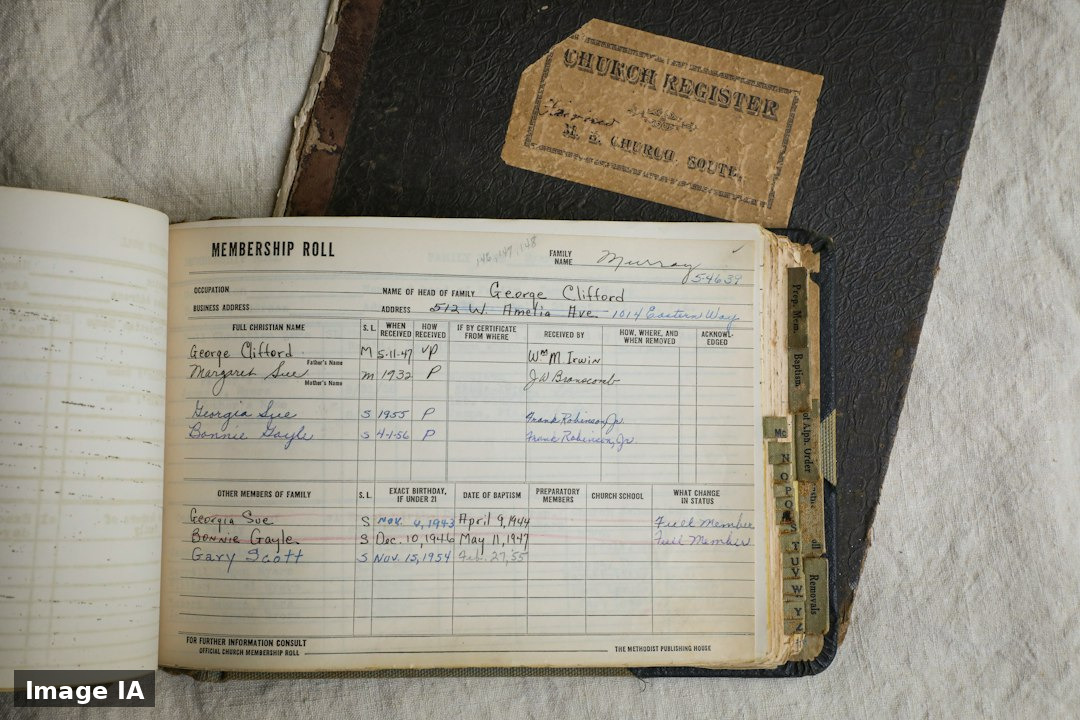 CHURCH REGISTER
M. E. CHURCH, SOUTH.
MEMBERSHIP ROLL
146, 147, 148
FAMILY NAME Murray
54639
OCCUPATION NAME OF HEAD OF FAMILY George Clifford
BUSINESS ADDRESS ADDRESS 512 W. Amelia Ave. - 1014 Eastern Way
FULL CHRISTIAN NAME S. L. WHEN RECEIVED HOW RECEIVED IF BY CERTIFICATE FROM WHERE RECEIVED BY HOW, WHERE, AND WHEN REMOVED ACKNOWL-EDGED
George Clifford M 5-11-47 VP Wm M Irwin
Father's Name
Margaret Sue M 1932 P J W Branscomb
Mother's Name
Georgia Sue S 1955 P Frank Robinson, Jr.
Bonnie Gayle S 4-1-56 P Frank Robinson, Jr.
OTHER MEMBERS OF FAMILY S. L. EXACT BIRTHDAY, IF UNDER 21 DATE OF BAPTISM PREPARATORY MEMBERS CHURCH SCHOOL WHAT CHANGE IN STATUS
Georgia Sue S Nov. 6, 1943 April 9, 1944 Full Member
Bonnie Gayle S Dec. 10, 1946 May 11, 1947 Full Member
Gary Scott S Nov. 15, 1954 Feb. 27, '55
FOR FURTHER INFORMATION CONSULT
OFFICIAL CHURCH MEMBERSHIP ROLL THE METHODIST PUBLISHING HOUSE
Prep. Mem.
Baptism.
of Alph. Order
Removals
Mc
N
O
P
T
U
V
W
Y
Z
Image IA